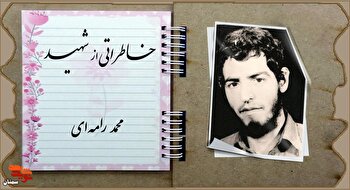 خاطراتی از شهید
محمد رامه‌ای
سمنان